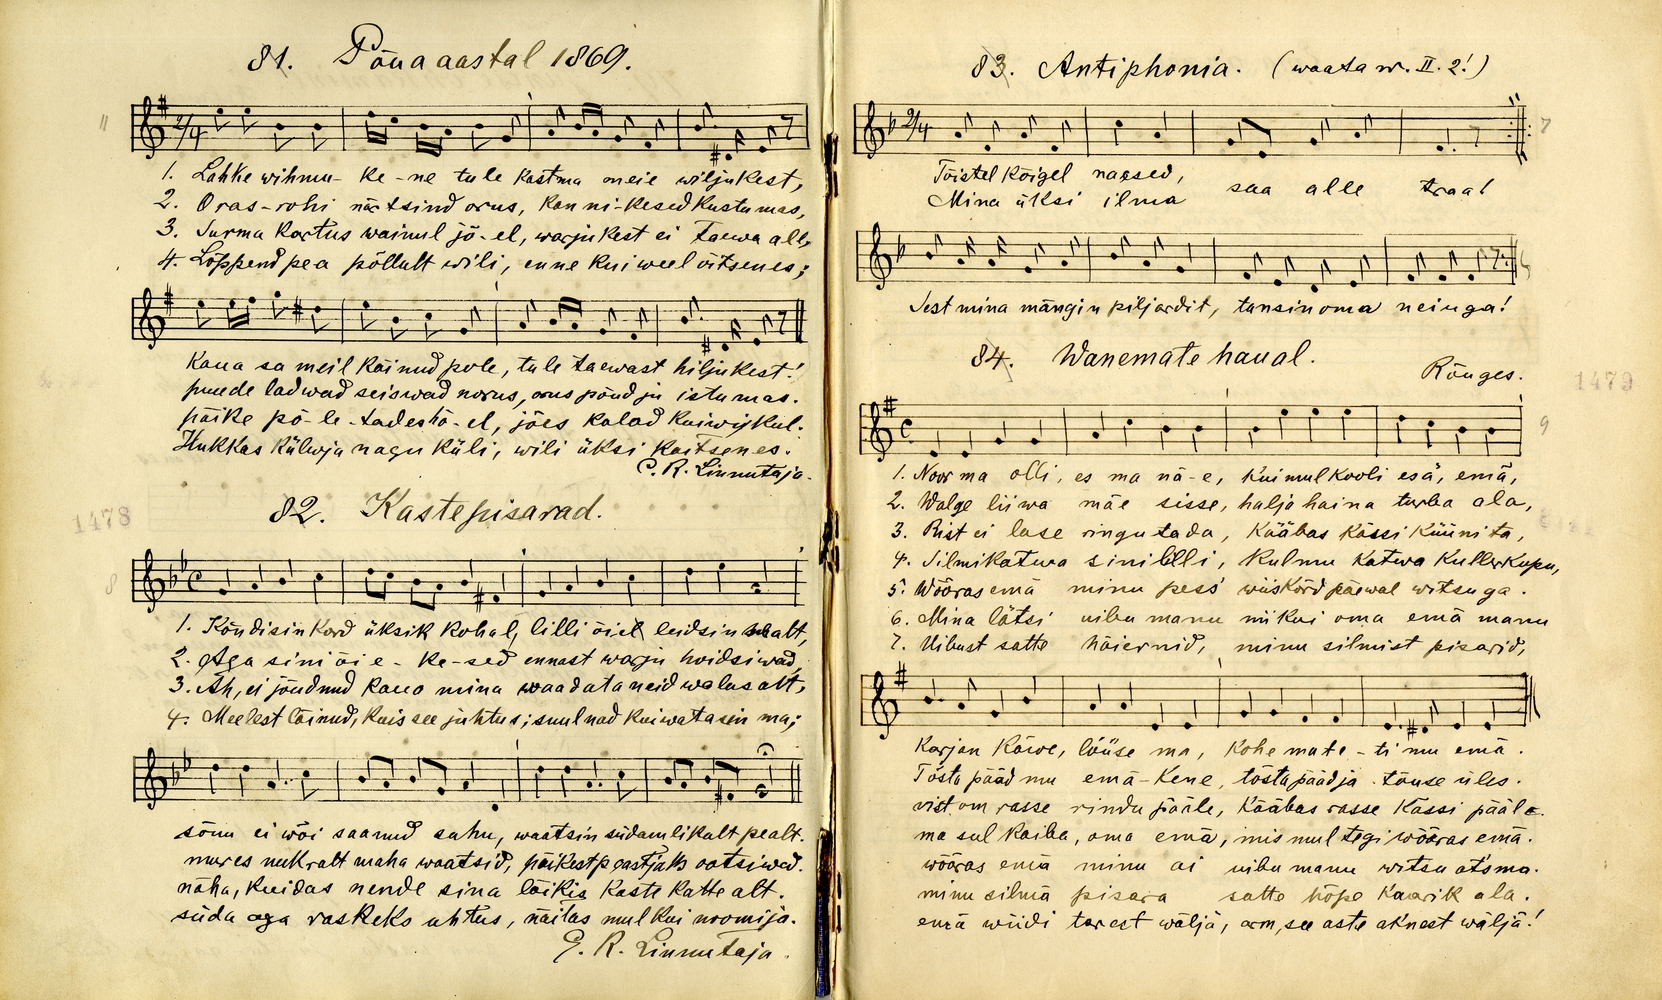 81. Põua aastal 1869.
1. Lahke wihmu- ke-ne tule kastma meie wiljukest,
2. Oras-rohi närtsind orus, kan ni-kesed kustumas,
3. Surma kartus wainul jõ-el, warjukest ei taewa all,
4. Lõppend pea põllult wili, enne kui weel õitsenes;
kaua sa meil käinud pole, tule taewast hiljukest!
puude ladwad seiswad norus, istumas.
päike põ-le-tades tö-el, jões kalad kuiwil kul.
Hukkas külwja nagu küli, wili üksi kaitsenes.
C. R. Linnutaja.
82. Kastepisarad.
1478
1. Kõndisin kord üksik kohal, lilli õiel leidsin sealt,
2. Aga sini õi e-ke-sed ennast warju hoidsiwad,
3. Ah, ei jõudnud kaua mina waadata neid walusalt,
4. Meelest läinud, kuis see juhtus; suulnad kuiwatasin ma;
sõnu ei wõi saanud sahu, waatsin südamlikult pealt.
mures nukralt maha waatsid, päikest ootsiwad.
näha, kuidas nende sina läikis kaste katte alt.
süda aga raskeks uhtus, näitas mul kui noomija.
C. R. Linnutaja.
83. Antiphonia. (waata nr. II. 2!)
7
Tõistel kõigel naesed,
Mina üksi ilma
saa alle traa!
Sest mina mängin piljardit, tansin oma neiuga!
84. Wanemate haual.
Rõuges.
1479
9
1. Noor ma olli, es ma nä-e, kui mul kooli esä, emä,
2. Walge liiwa mäe sisse, halja haina turba ala,
3. Rist ei lase ringutada, kääbas kässi küünita,
4. Silmi katwa sinililli, kulmu katwa kullerkupu,
5. Wõõras emä minu pess' wiiskõrd päewal witsuga.
6. Mina lätsi uibu manu nii kui oma emä manu
7. Uibust satte häiernid, minu silmist pisarid,
Karjan käwe, lõüse ma, kohe mate-ti mu emä.
Tõsta pääd mu emä-kene, tõsta pääd ja tõuse üles.
rist om rasse rindu pääle, kääbas rasse kässi pääle.
ma sul kaiba, oma emä, mis mul tegi wõõras emä.
wõõras emä minu ai uibu manu witsu otsma.
minu silmä pisara satte hõpe kaarik ala.
emä wiidi tarest wäljä, arm, see aste aknest wäljä!